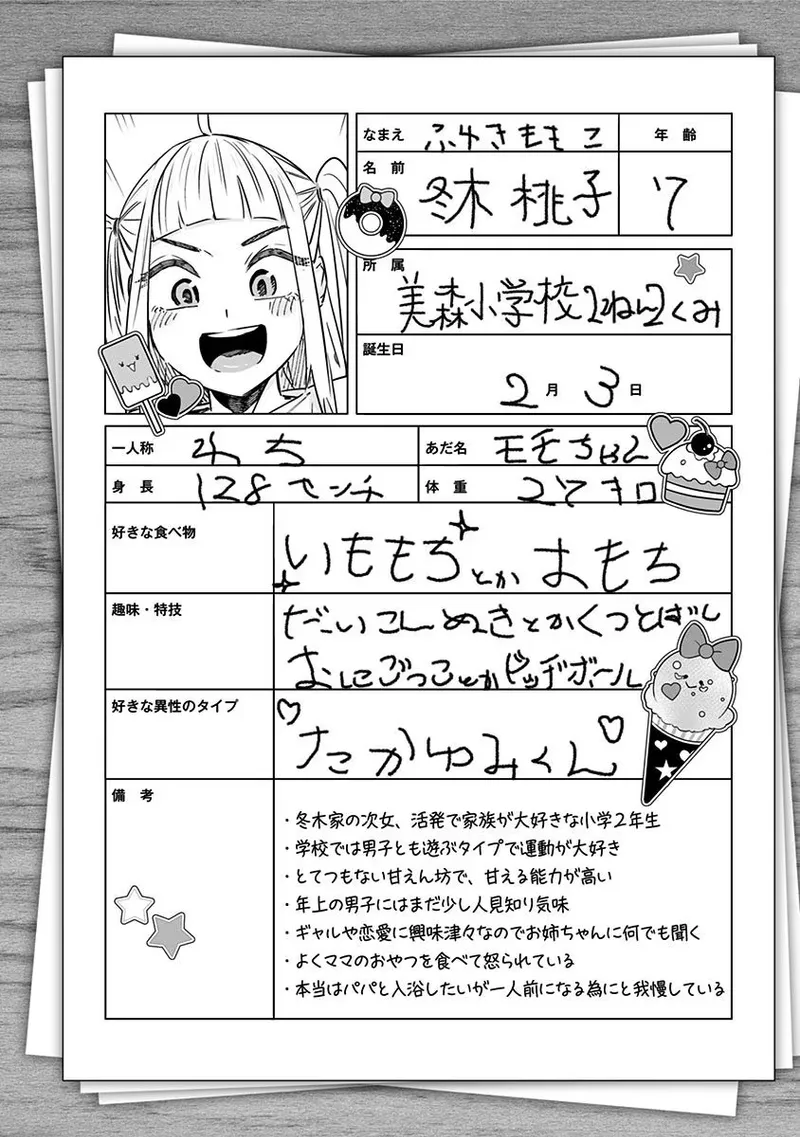 なまえ ふゆきももこ
年齢
名前 冬木 桃子
7
所属
美森小学校2ねん2くみ
誕生日
2月 3日
一人称 わち
あだ名 モモちゃん
身長 128センチ
体重 27キロ
好きな食べ物
いももちとか おもち
趣味・特技
だいこんぬきとかくつとばし
おにごっことかドッヂボール
好きな異性のタイプ
たかゆみくん
備考
・冬木家の次女、活発で家族が大好きな小学2年生
・学校では男子とも遊ぶタイプで運動が大好き
・とてつもない甘えん坊で、甘える能力が高い
・年上の男子にはまだ少し人見知り気味
・ギャルや恋愛に興味津々なのでお姉ちゃんに何でも聞く
・よくママのおやつを食べて怒られている
・本当はパパと入浴したいが一人前になる為にと我慢している